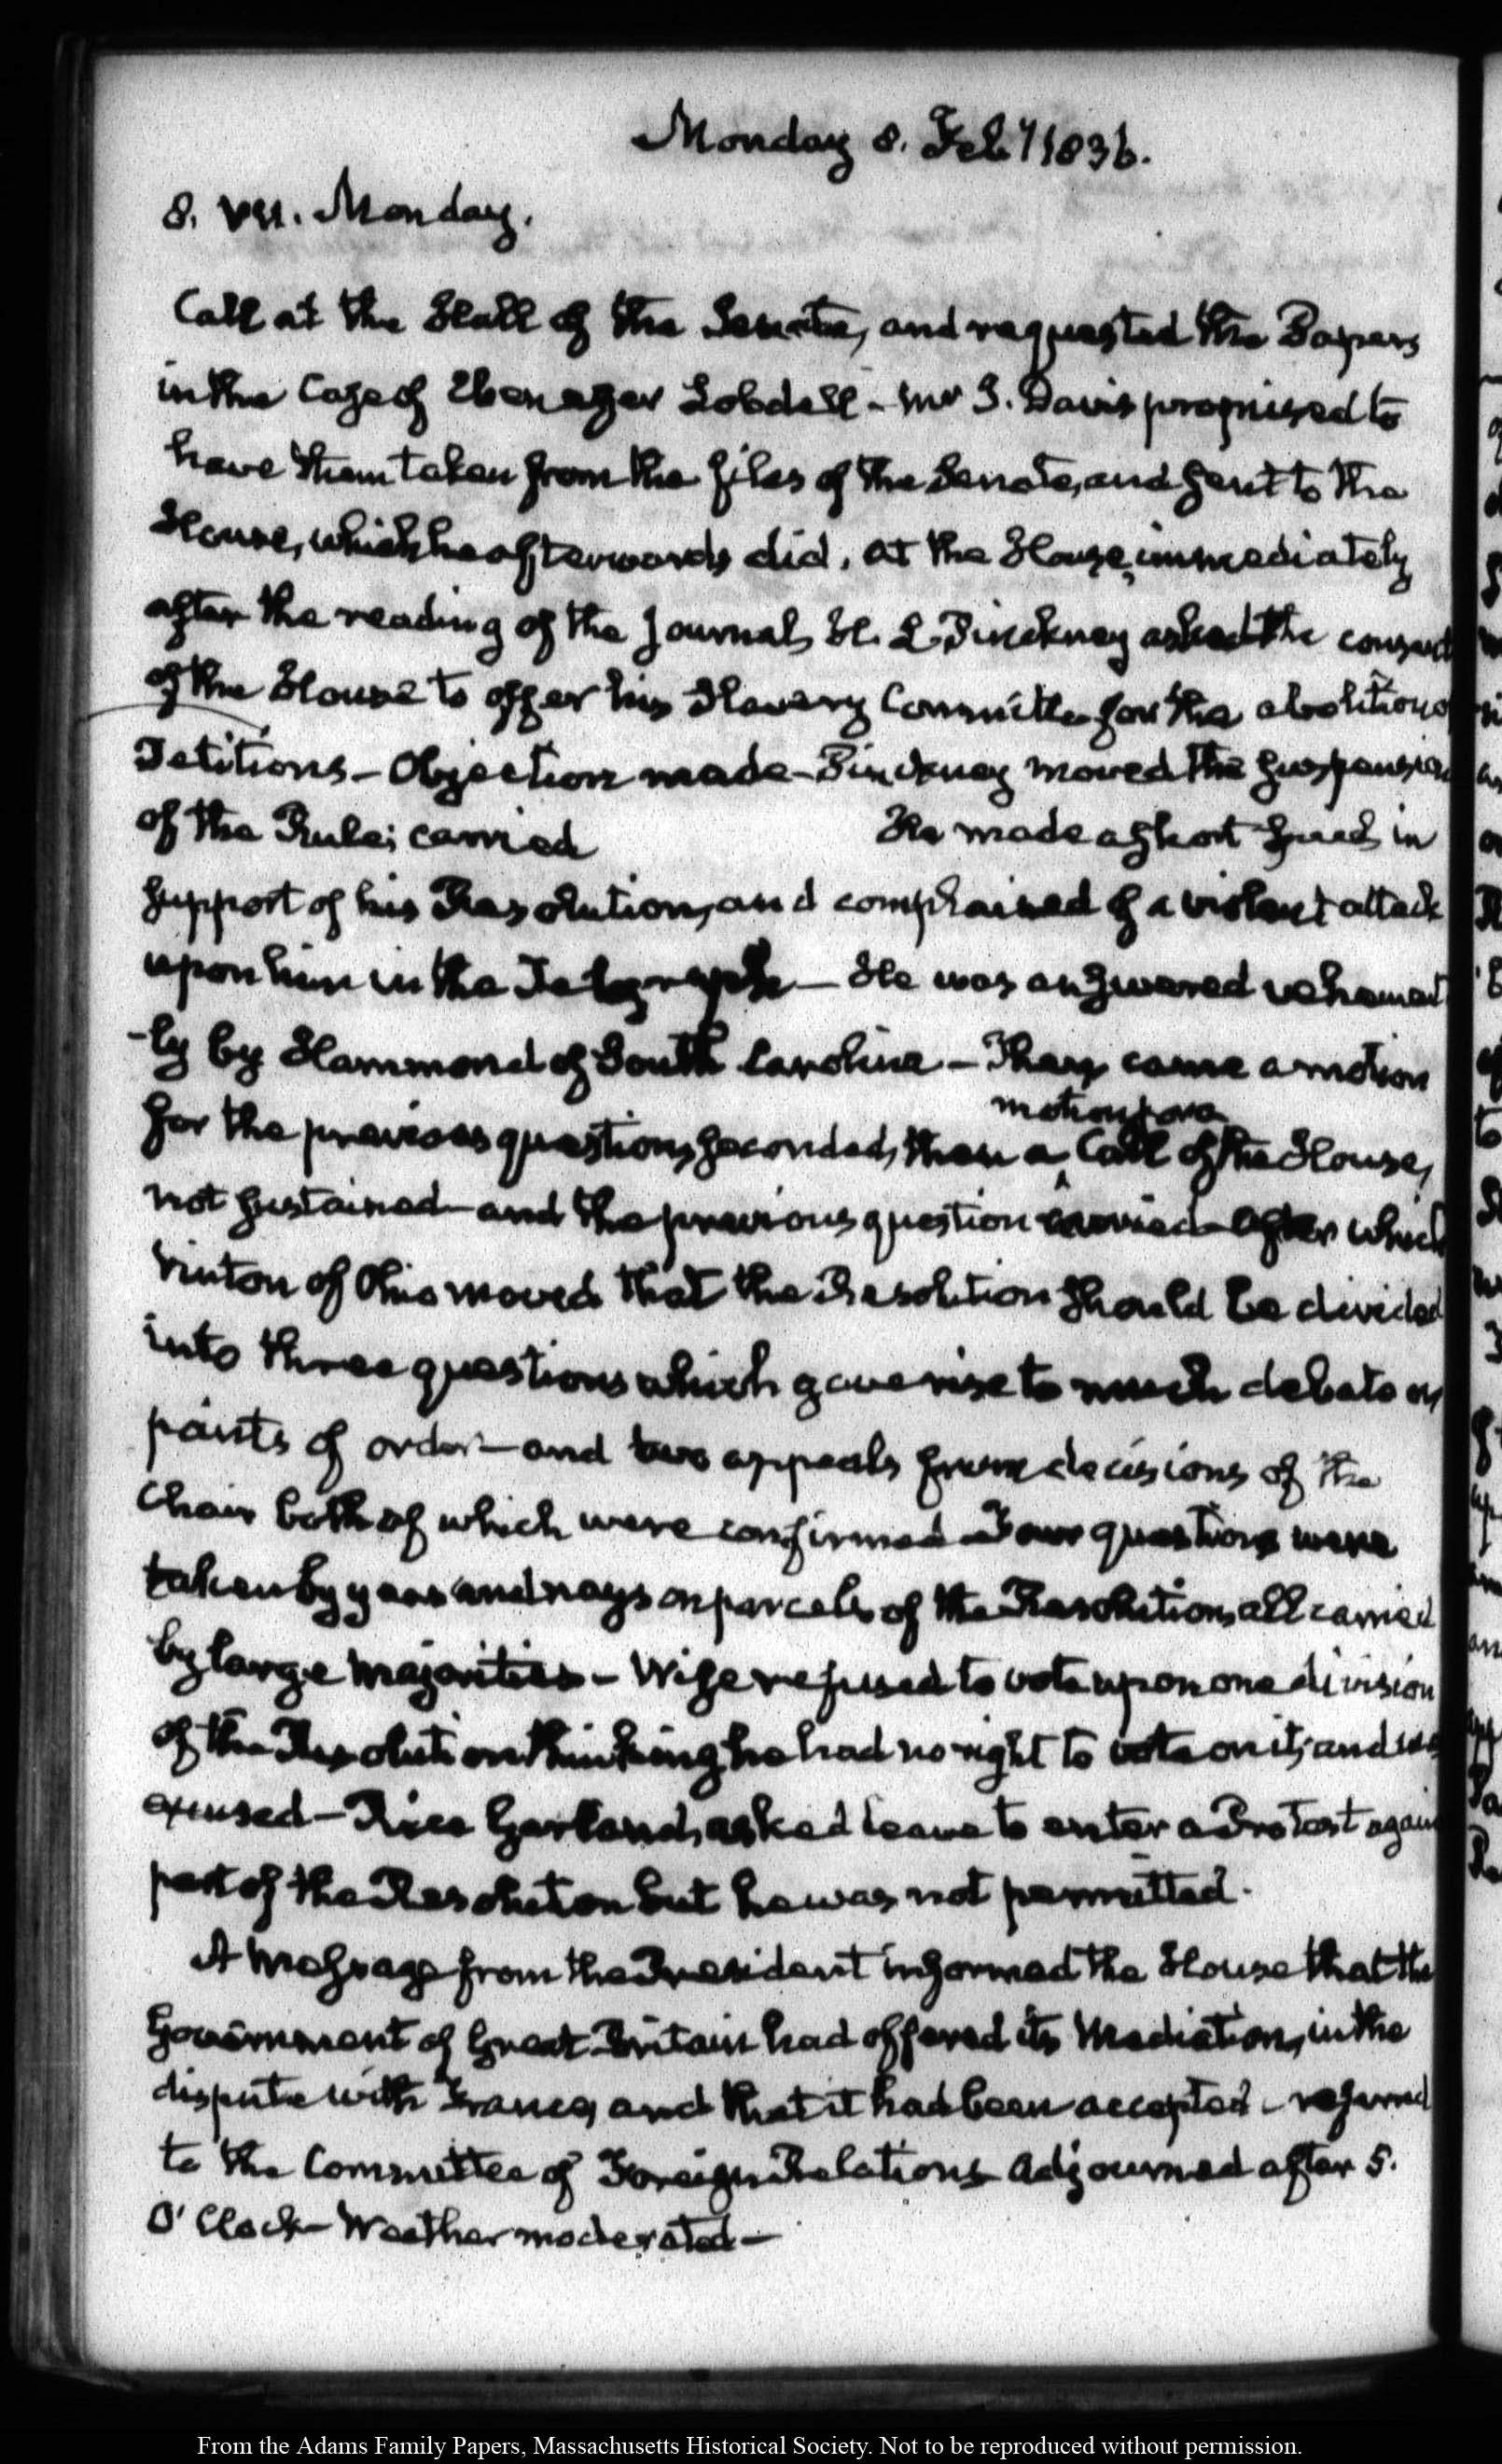 Monday 8. Feby 1836.
8. VII. Monday.
Call at the Hall of the Senate, and requested the Papers
in the Case of Ebenezer Lobdell – Mr J. Davis promised to
have them taken from the files of the Senate, and sent to the
House, which he afterwards did. At the House, immediately
after the reading of the Journal, H. L. Pinckney asked the consent
of the House to offer his Slavery Committee for the abolition
Petitions – Objection made – Pinckney moved the suspension
of the Rule; carried He made a short speech in
support of his Resolution, and complained of a violent attack
upon him in the Telegraph – He was answered vehement
-ly by Hammond of South Carolina – Then came a motion
motion for a
for the previous question, seconded, then a Call of the House,
not sustained – and the previous question carried – after which
Vinton of Ohio moved that the Resolution should be divided
into three questions which gave rise to much debate on
points of order – and two appeals from decisions of the
Chair both of which were confirmed – Four questions were
taken by yeas and nays on parcels of the Resolution, all carried
by large majorities – Wise refused to vote upon one division
of the Resolution thinking he had no right to vote on it; and was
excused – Rice Garland, asked leave to enter a Protest again
part of the Resolution but he was not permitted.
A Message from the President informed the House that the
Government of Great-Britain had offered its Mediation, in the
dispute with France, and that it had been accepted – referred
to the Committee of Foreign Relations Adjourned after 5.
O' Clock – Weather moderated –
From the Adams Family Papers, Massachusetts Historical Society. Not to be reproduced without permission.